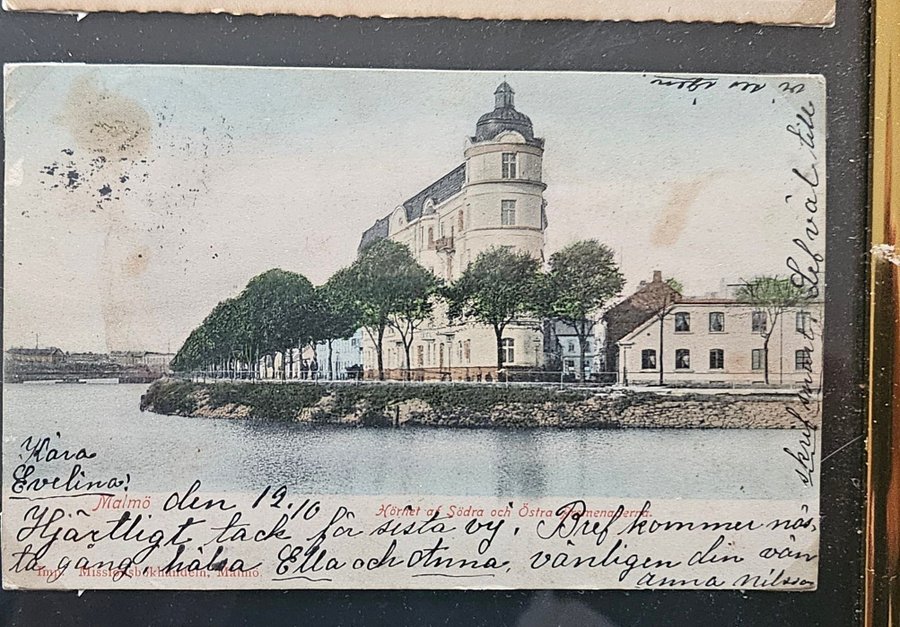 Kära
Evelina!
Malmö den 19.10
Hörnet af Södra och Östra Promenaderna.
Hjärtligt tack för sista vy. Bref kommer näs-
ta gång, hälsa Ella och Anna, vänligen din vän
Anna Nilsson
Imp. Missionsbokhandeln, Malmö.
skrif snart. Lef väl till
vi